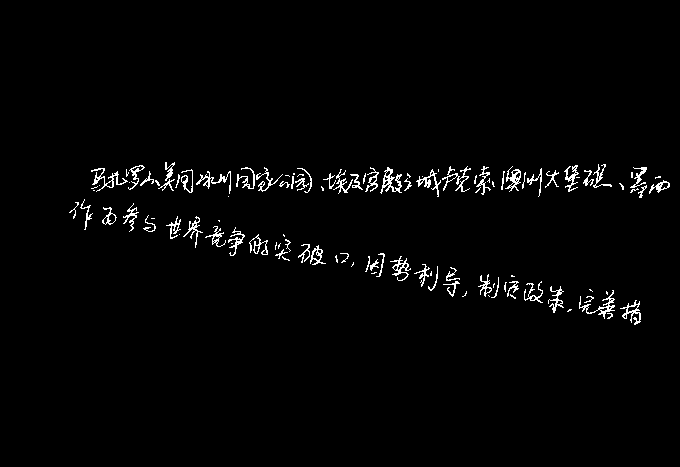 马扎罗山、美国冰川国家公园、埃及宫殿之城卢克索、澳洲大堡礁、墨西
作为参与世界竞争的突破口,因势利导,制定政策,完善措